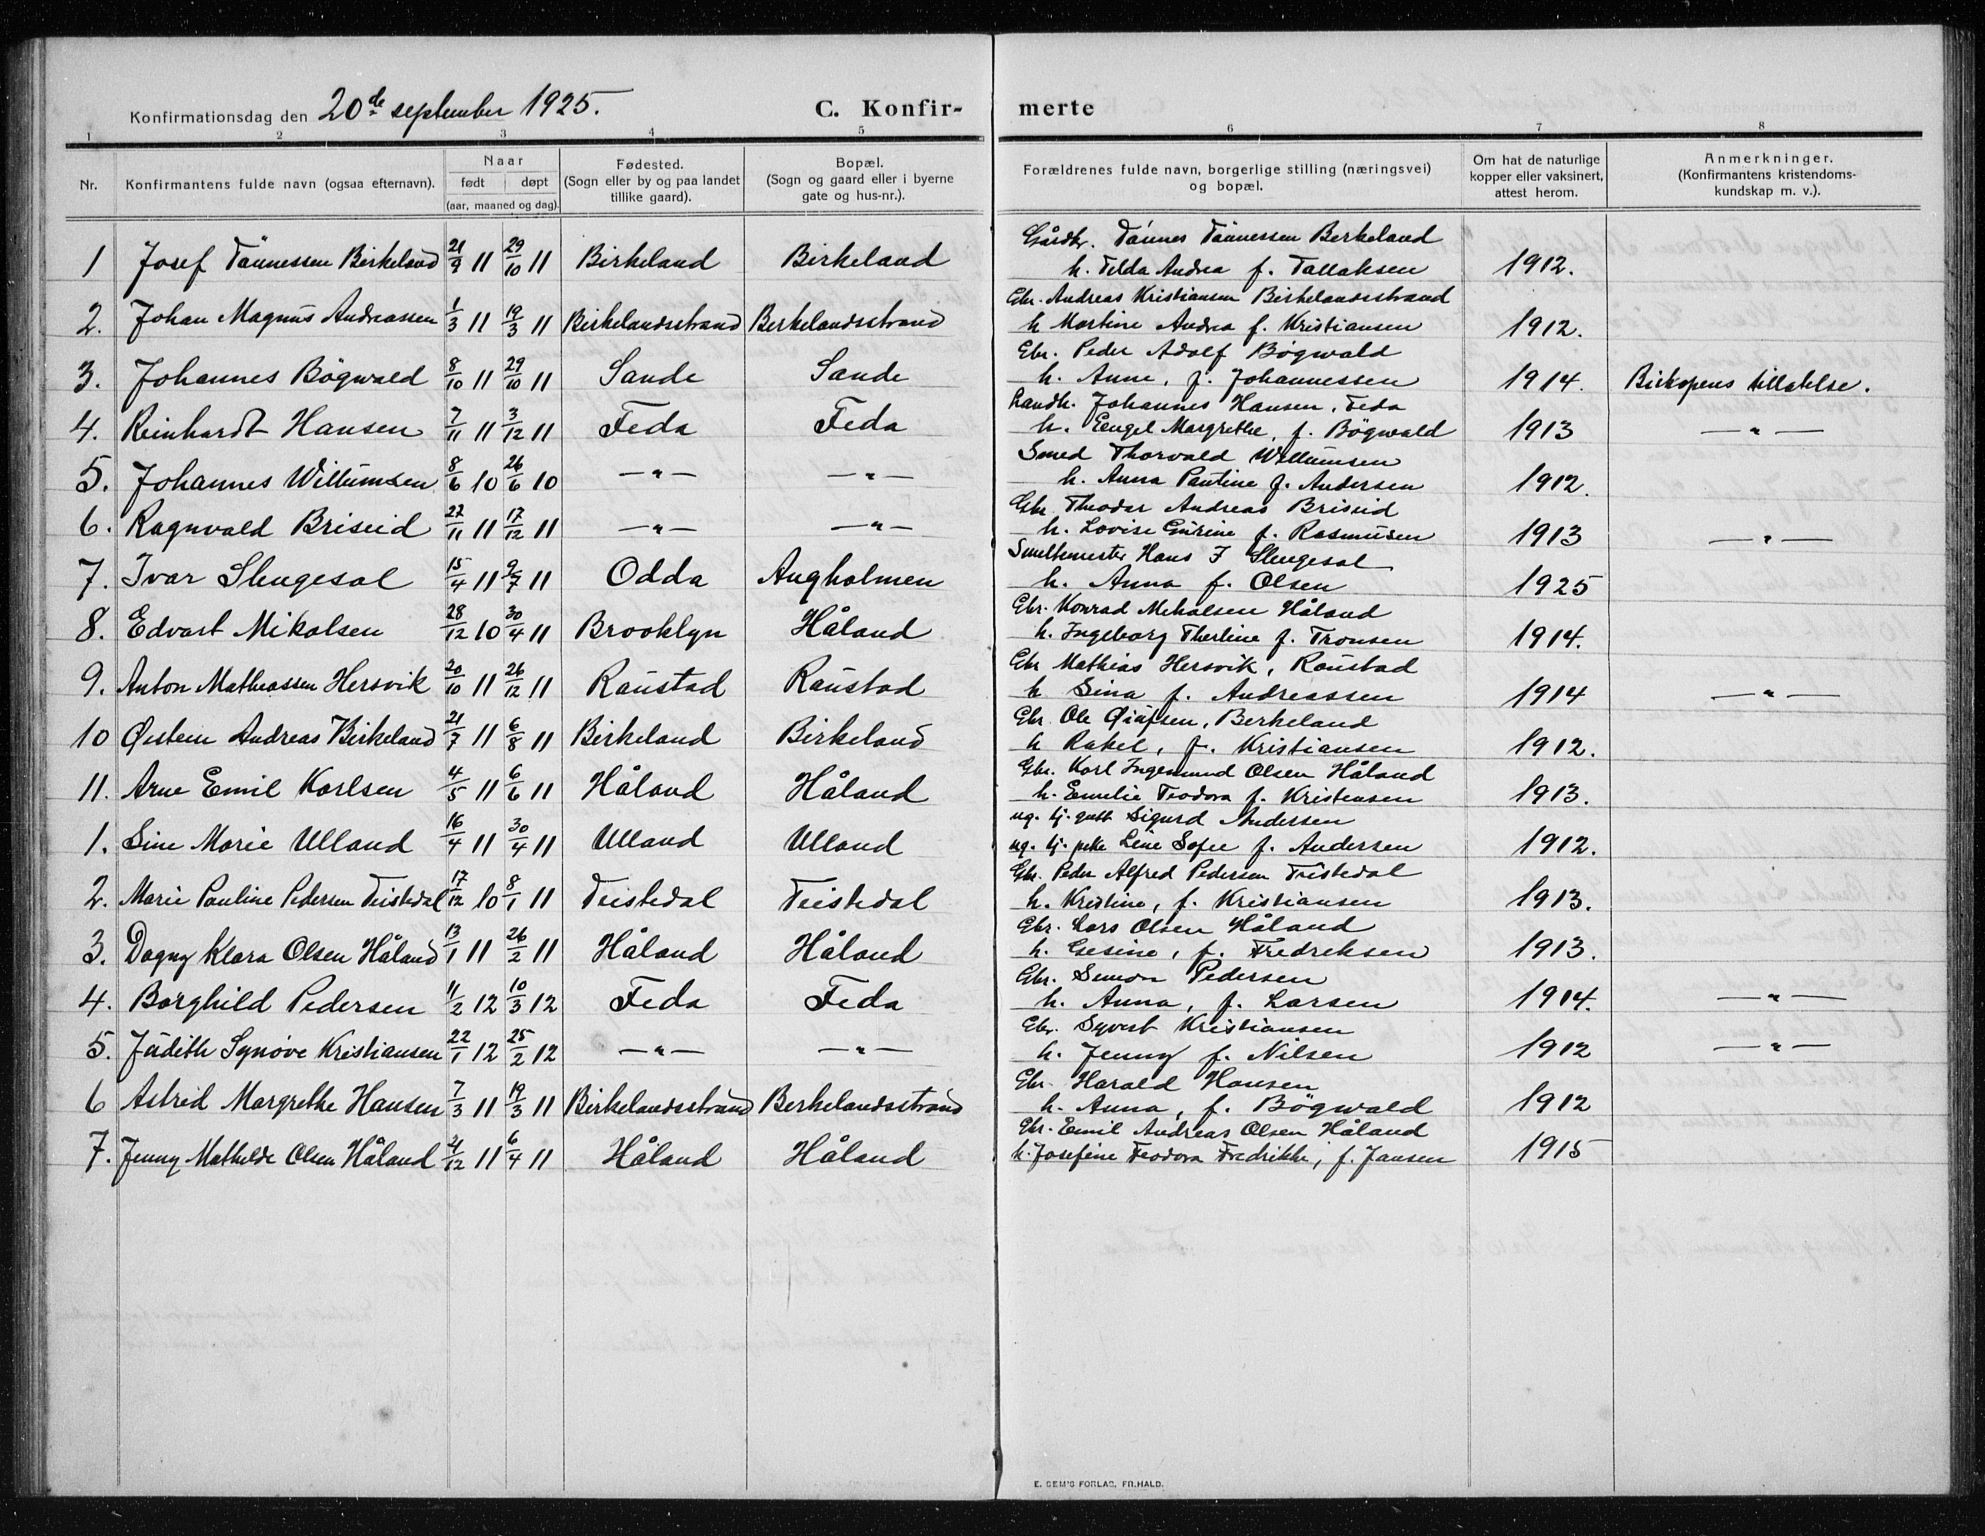 Konfirmationsdag den 20de september 1925. C. Konfir- merte
1 2 3 4 5 6 7 8
Nr. Konfirmantens fulde navn (ogsaa efternavn). Naar født døpt (aar, maaned og dag). Fødested. (Sogn eller by og paa landet tillike gaard). Bopæl. (Sogn og gaard eller i byerne gate og hus-nr.). Forældrenes fulde navn, borgerlige stilling (næringsvei) og bopæl. Om hat de naturlige kopper eller vaksinert, attest herom. Anmerkninger. (Konfirmantens kristendoms-kundskap m. v.).
Gårdbr. Tönnes Tönnessen Berkeland
1 Josef Tönnessen Birkeland 21/9 11 29/10 11 Birkeland Birkeland h. Telda Andrea f. Tallaksen 1912.
Gbr. Andreas Kristiansen Birkelandsstrand
2. Johan Magnus Andreassen 1/3 11 19/3 11 Birkelandsstrand Berkelandsstrand h Martine Andrea f. Kristiansen 1912.
Gbr. Peder Adolf Bögwald
3. Johannes Bögwald 8/10 11 29/10 11 Sande Sande h. Anne, f. Johannessen 1914. Biskopens tillatelse.
Landh. Johannes Hansen, Feda
4. Reinhardt Hansen 7/11 11 3/12 11 Feda Feda h. Engel Margrethe, f. Bögwald 1913 —"—
Smed Thorvald Willumsen
5. Johannes Willumsen 8/6 10 26/6 10 —"— —"— h. Anna Pauline f. Andersen 1912.
Gbr Theodor Andreas Briseid
6. Ragnvald Briseid 27/11 11 17/12 11 —"— —"— h. Lovise Gurine f. Rasmusen 1913 —"—
Smeltemester Hans J Slengesol
7. Ivar Slengesol 15/4 11 9/7 11 Odda Angholmen h. Anna f. Olsen 1925
Gbr. Konrad Mikalsen Håland
8. Edvart Mikalsen 28/12 10 30/4 11 Brooklyn Håland h. Ingeborg Therline f. Tronsen 1914.
Gbr Mathias Hersvik, Raustad
9. Anton Matheassen Hersvik 20/10 11 26/12 11 Raustad Raustad h Sina f. Andreassen 1914 —"—
Gbr. Ole Berkeland
10 Østein Andreas Birkeland 21/7 11 6/8 11 Birkeland Birkeland h Rakel, f. Kristiansen 1912.
Gbr. Karl Ingemund Olsen Håland
11. Arne Emil Karlsen 4/5 11 6/6 11 Håland Håland h. Emelie Teodora f. Kristensen 1913.
ug. tj. gutt Sigurd Andersen
1. Sine Marie Ulland 16/4 11 30/4 11 Ulland Ulland ug. tj. peke Line Sofie f. Andersen 1912.
Gbr. Peder Alfred Pedersen Teistedal
2. Marie Pauline Pedersen Teistedal 17/12 10 8/1 11 Teistedal Teistedal h. Kristine, f. Kristiansen 1913.
Gbr. Lars Olsen Håland
3. Dagny Klara Olsen Håland 13/1 11 26/2 11 Håland Håland h. Gesine, f. Fredriksen 1913.
Gbr. Simon Pedersen
4. Borghild Pedersen 11/2 12 10/3 12 Feda Feda h. Anna, f. Larsen 1914. —"—
Gbr. Syvert Kristiansen
5. Judith Synøve Kristiansen 22/1 12 25/2 12 —"— —"— h. Jenny f. Nilsen 1912 —"—
Gbr. Harald Hansen
6 Astrid Margrethe Hansen 7/3 11 19/3 11 Birkelandsstrand Berkelandsstrand h. Anna, f. Bögwald 1912
Gbr. Emil Andreas Olsen Håland
7. Jenny Mathilde Olsen Håland 11 6/4 11 Håland Håland h. Josefine Teodora Fredrikke, f. Jansen 1915
E. SEM'S FORLAG, FR.HALD.